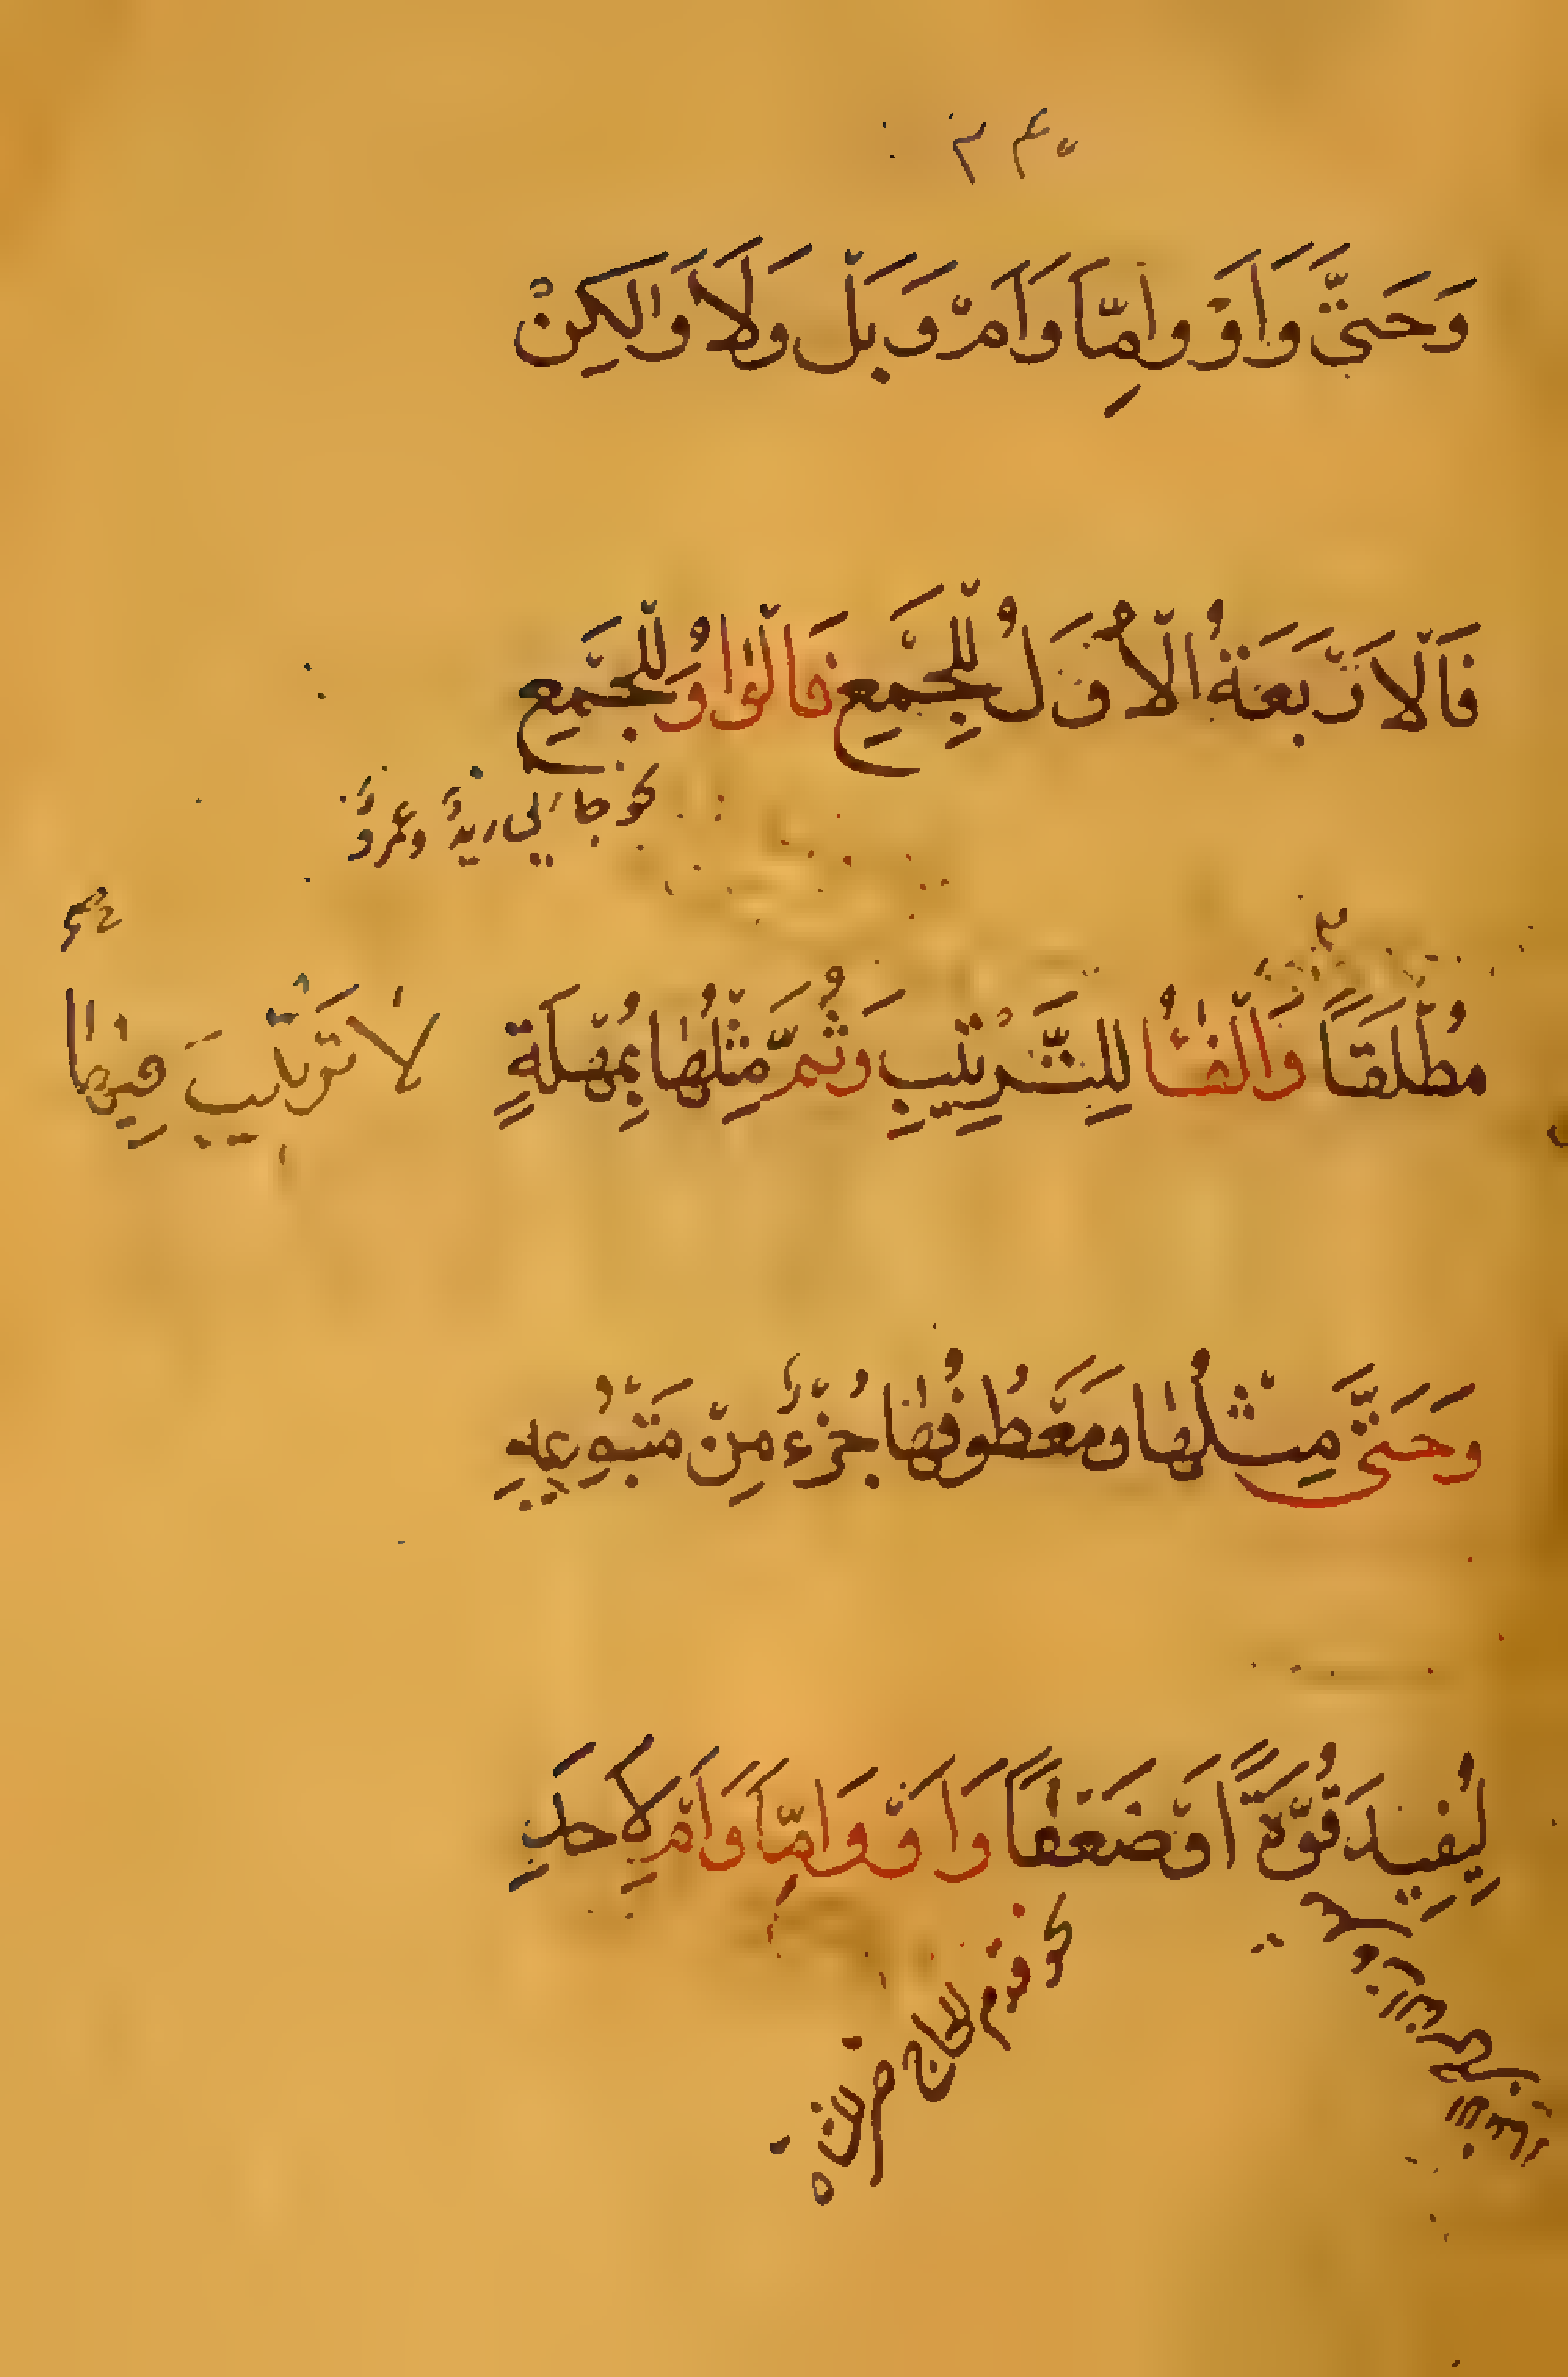 وَحَتّٰى وَاَوْ وَاِمَّا وَاَمْ وَبَلْ وَلَا وَلٰكِنْ
فَالْاَرْبَعَةُ الْاُوَلُ لِلْجَمْعِ فَالْوَاوُ لِلْجَمْعِ
نحو جائني زيدٌ وعمروٌ
مُطْلَقًا وَالْفَاءُ لِلتَّرْتِيْبِ وَثُمَّ مِثْلُهَا بِمُهْلَةٍ
لا تَرْتِيْبَ فِيْهَا
وَحَتّٰى مِثْلُهَا وَمَعْطُوْفُهَا جُزْءٌ مِنْ مَتْبُوْعِهِ
لِيُفِيْدَ قُوَّةً اَوْ ضَعْفًا وَاَوْ وَاِمَّا وَاَمْ لِاَحَدِ
نحو قدم الحاج حتى المشاة